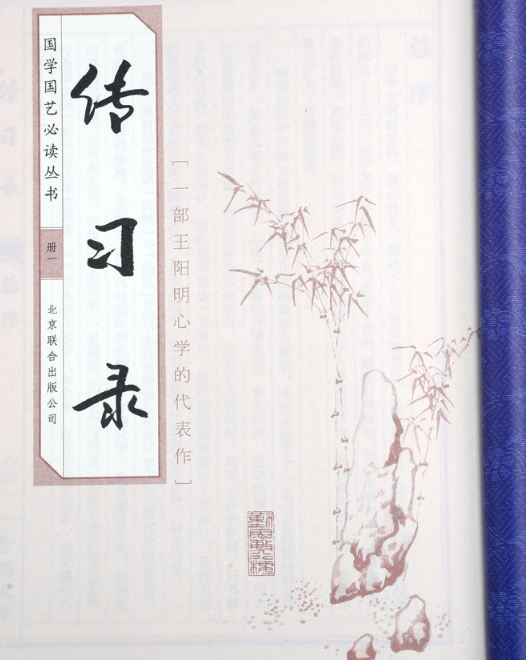 国学国艺必读丛书
传习录
册一
北京联合出版公司
[一部王阳明心学的代表作]